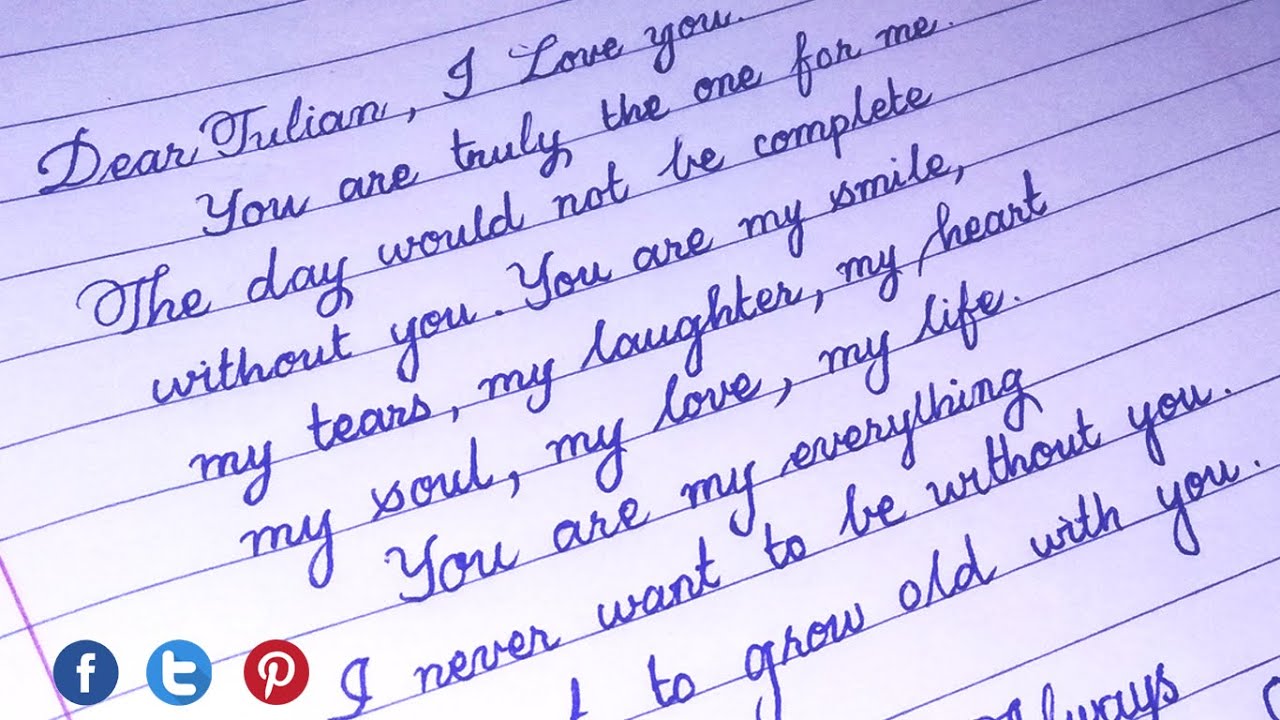 Dear Tulian, I Love you.
You are truly the one for me.
The day would not be complete
without you. You are my smile,
my tears, my laughter, my heart
my soul, my love, my life.
You are my everything
I never want to be without you.
to grow old with you.
Always